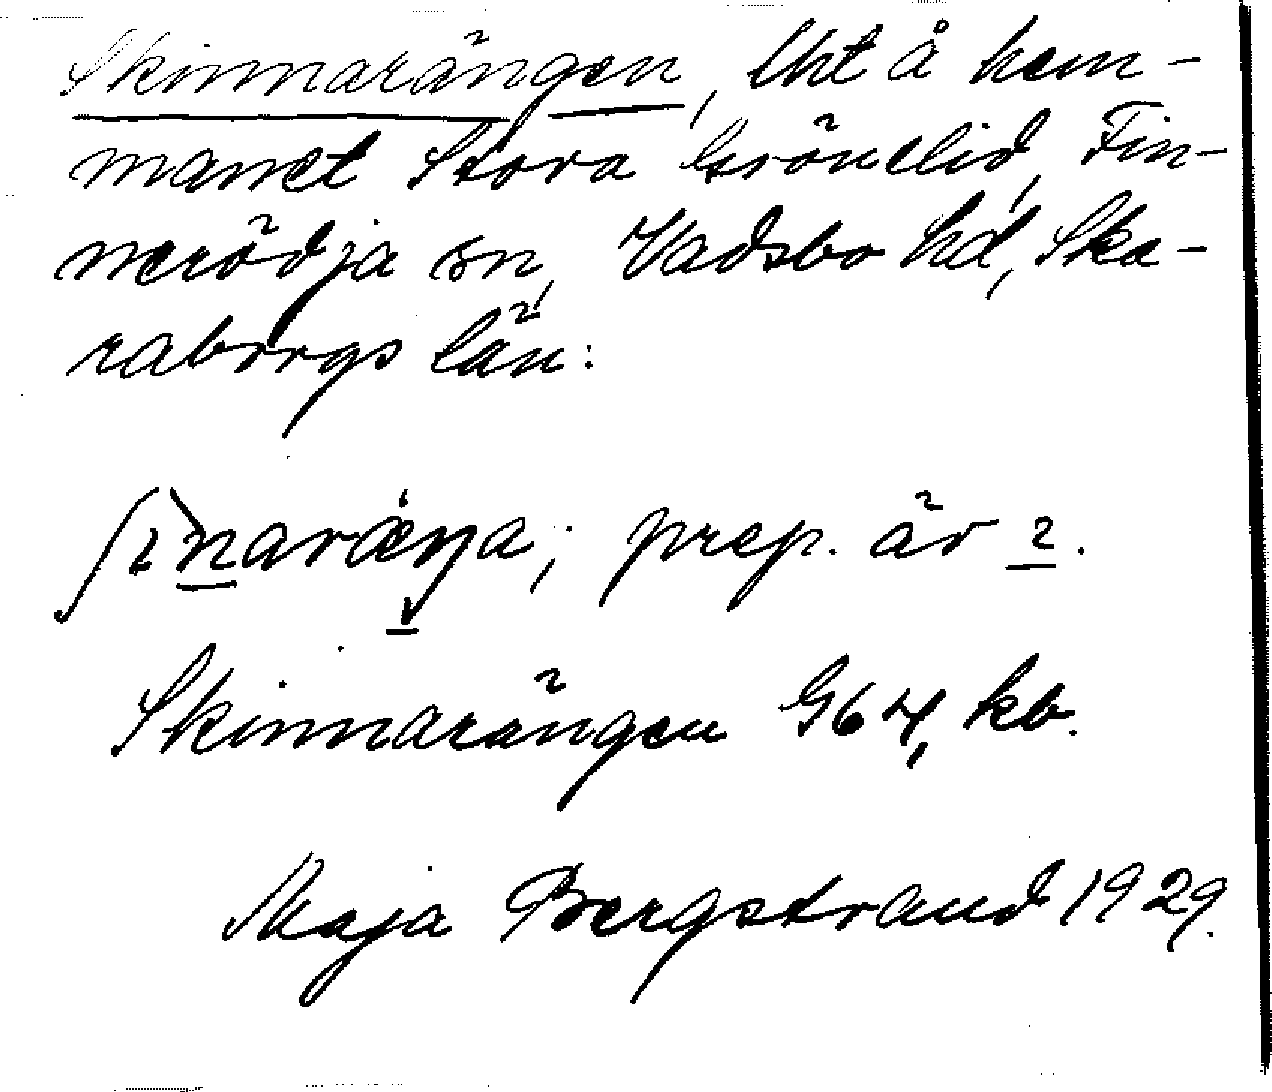 Skinnarängen, lht å hem-
manet Stora Gröndlid, Fin-
nerödja sn, Vadsbo hd, Ska-
raborgs län:
prep. är
Skinnarängen G64, kb.
Maja Bergstrand 1929.